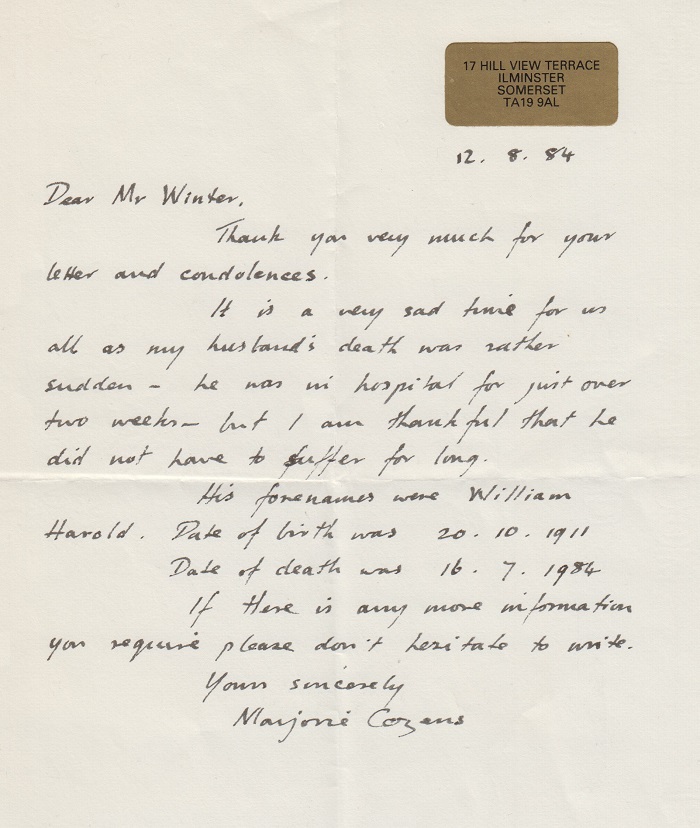 17 HILL VIEW TERRACE
ILMINSTER
SOMERSET
TA19 9AL
12. 8. 84
Dear Mr Winter,
Thank you very much for your
letter and condolences.
It is a very sad time for us
all as my husband's death was rather
sudden - he was in hospital for just over
two weeks - but I am thankful that he
did not have to suffer for long.
His forenames were William
Harold. Date of birth was 20. 10. 1911
Date of death was 16. 7. 1984
If there is any more information
you require please don't hezitate to write.
Yours sincerely
Marjorie Cozens